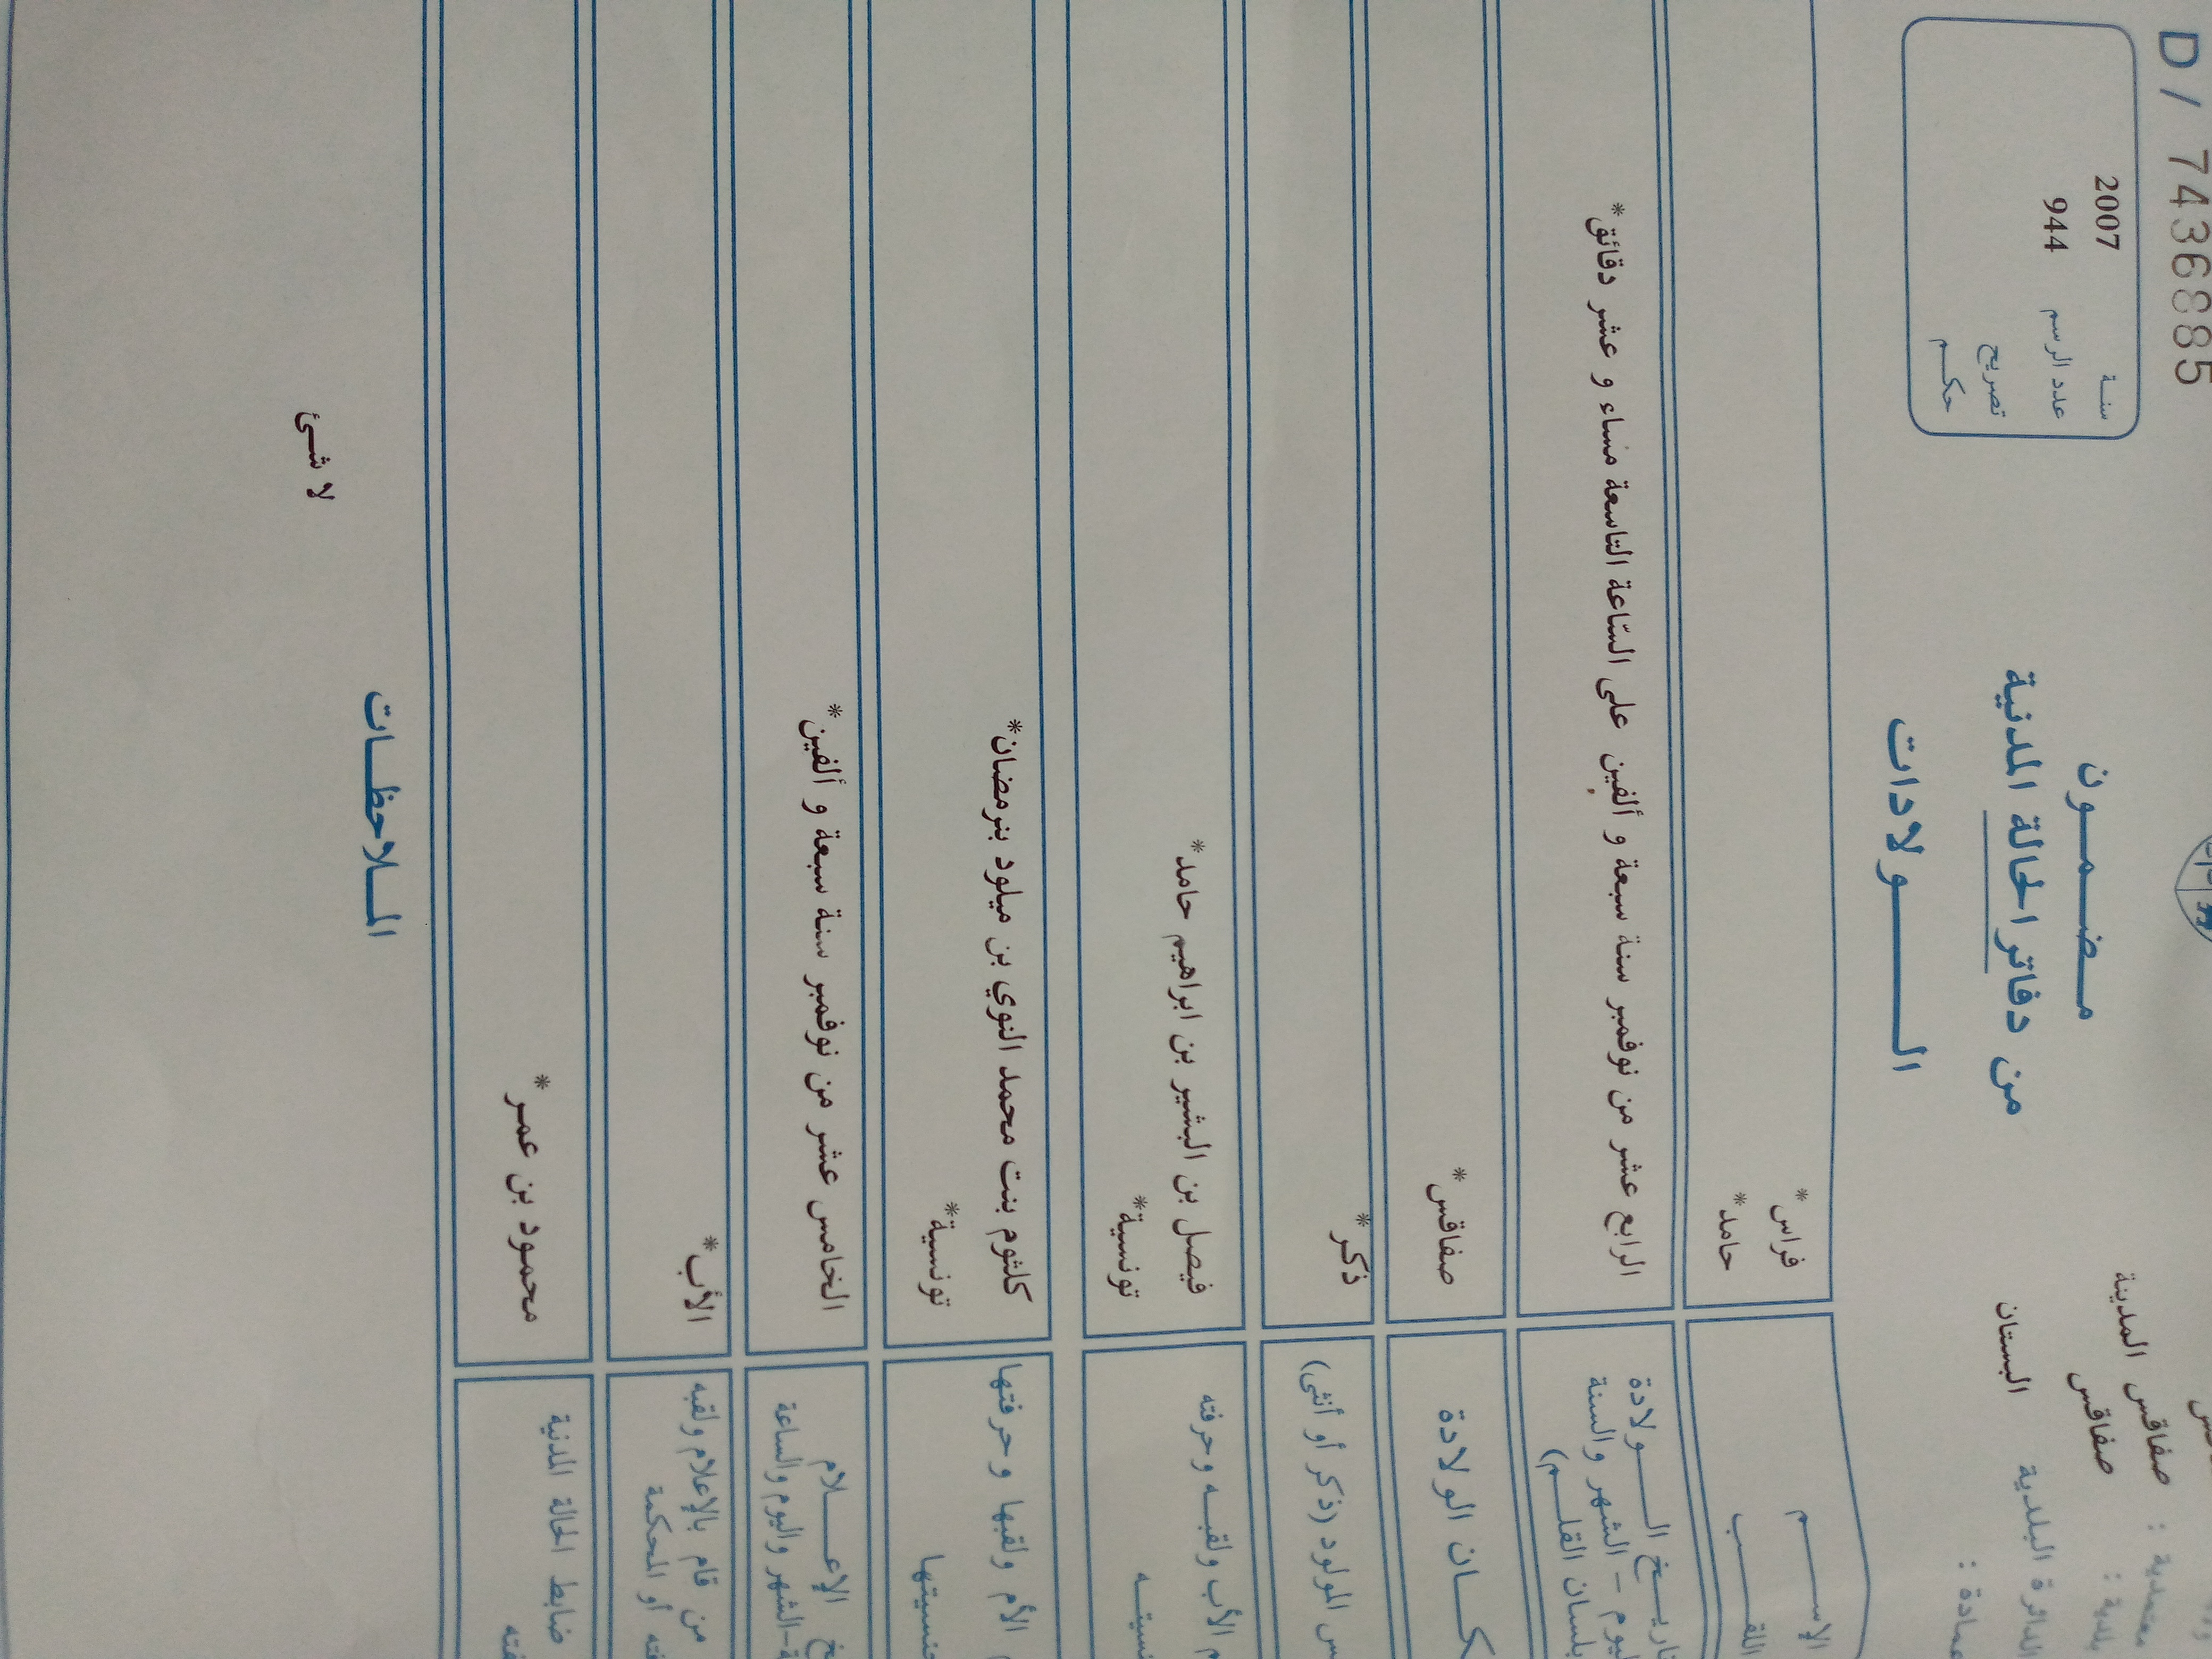 D / 7436885
سنة 2007
عدد الرسم 944
تصريح
حكم
معتمدية : صفاقس المدينة
بلدية : صفاقس
الدائرة البلدية البستان
عمادة :
مضمون
من دفاتر الحالة المدنية
الولادات
الإسم فراس *
اللقب حامد *
تاريخ الولادة الرابع عشر من نوفمبر سنة سبعة و ألفين على السّاعة التاسعة مساء و عشر دقائق *
اليوم - الشهر والسنة
بلسان القلم)
مكان الولادة صفاقس *
المولود (ذكر أو أنثى) ذكر *
الأب ولقبه وحرفته فيصل بن البشير بن ابراهيم حامد *
تونسية *
الأم ولقبها وحرفتها كلثوم بنت محمد النوي بن ميلود بنرمضان *
جنسيتها تونسية *
الإعلام الخامس عشر من نوفمبر سنة سبعة و ألفين *
الشهر واليوم والساعة
من قام بالإعلام ولقبه الأب *
أو المحكمة
ضابط الحالة المدنية محمود بن عمر *
الملاحظات
لا شئ